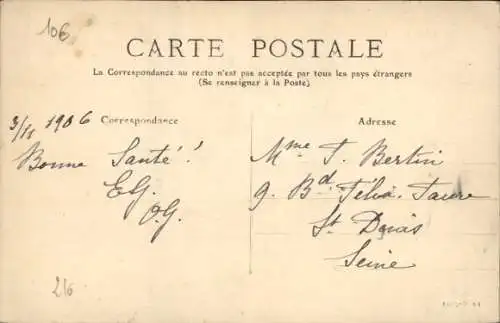 106
CARTE POSTALE
La Correspondance au recto n'est pas acceptée par tous les pays étrangers
(Se renseigner à la Poste)
3/11 1906
Correspondance
Bonne Santé!
EG.
O.G.
Adresse
Mme T. Bertin
9. Bd Félix. Faure
St Denis
Seine
216